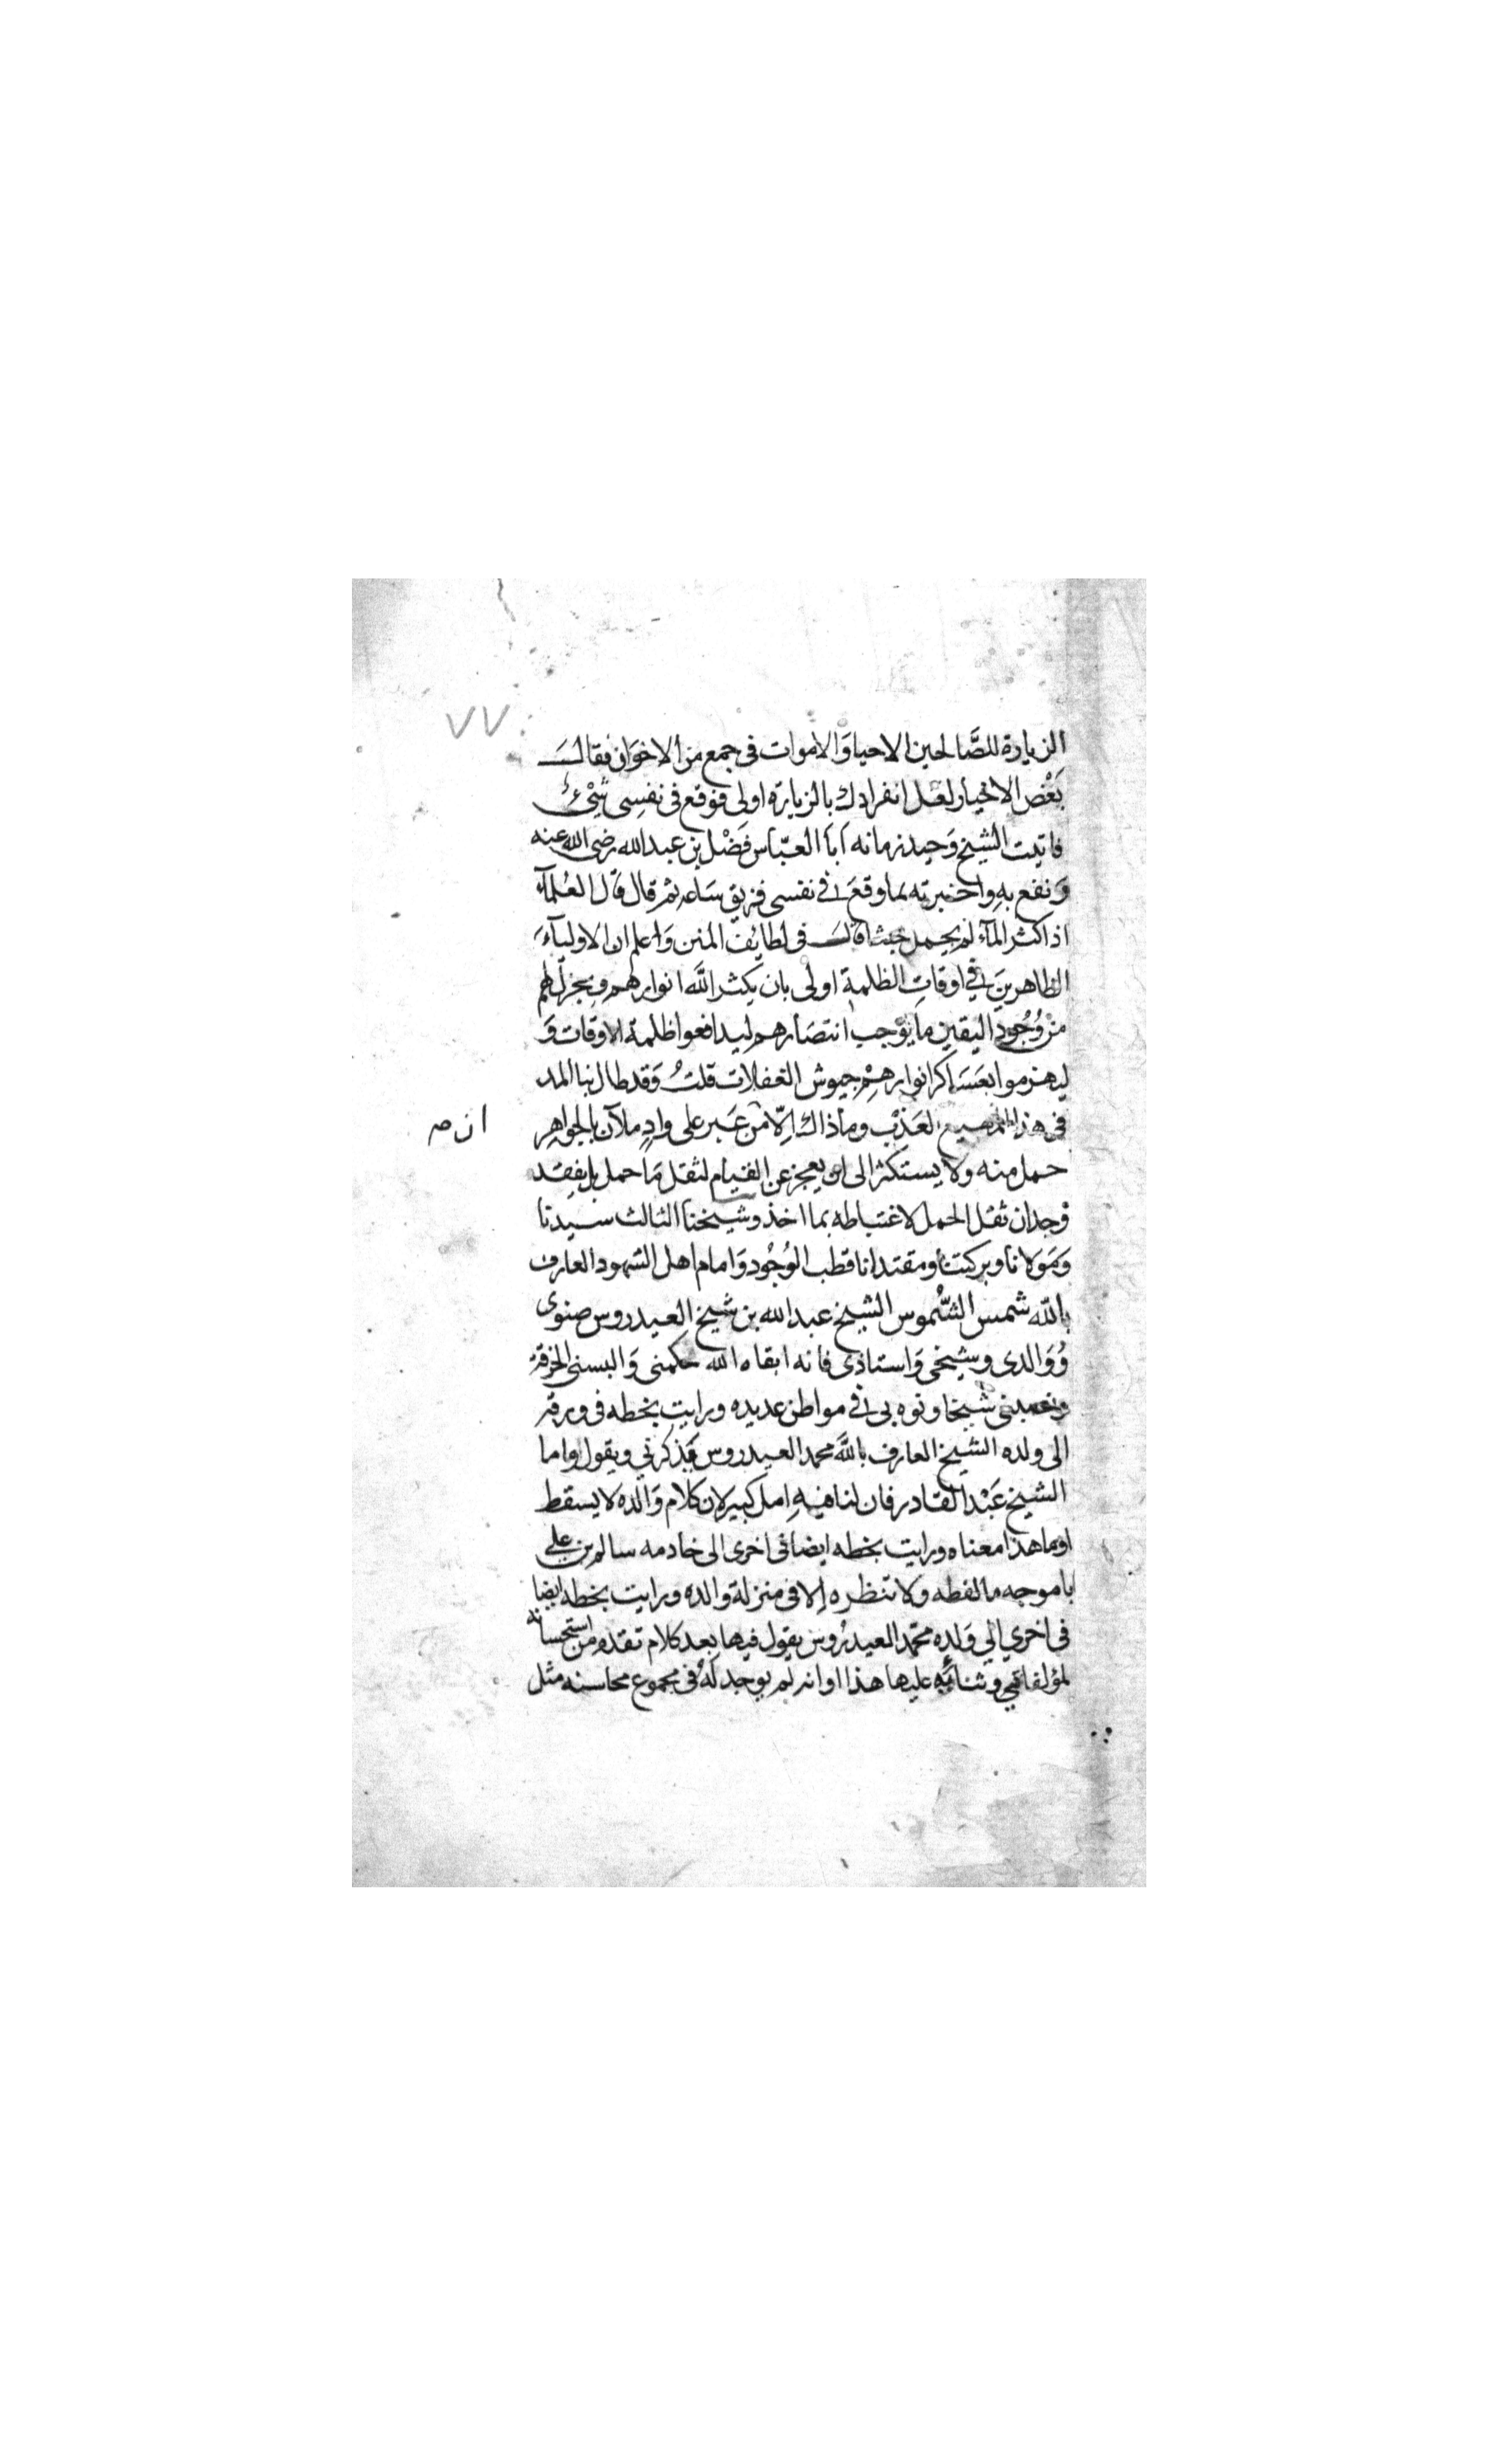 ٧٧
الزيارة للصَّالحين الاحيا وَالاموات فى جمع من الاخوَان فقالَ
بَعْض الاخيار لعَل انفرادك بالزيارة اولى فوقع فى نفسِى شَئْ
فاتيت الشيخ وَحيد زمانه اَبا العبّاس فَضْل بن عبد الله رضى الله عنه
وَنفع به واخبرته بما وقعَ فى نفسى فزيق سَاعه ثم قال قال العُلمآء
اذا كثر المآء لم يحمل خبثا قال فى لطايف المنن وَاعلم ان الاوليآءَ
الظاهرينَ فى اوقاتِ الظلمةِ اولى بان يكثر اللَّه انوارهم ويجزل لهم
من وُجُودِ اليقين ما يوجب انتصَارهم ليدافعوا ظلمة الاوقات وَ
ليهزموا بعَسَاكر انوارهِمْ جيوش الغفلات قلتُ وَقد طال بنا المد
فى هذا العَذْب وما ذاك اِلّا من عَبر على وادٍ ملآن بالجواهِر
ان صـ
حمل منه ولا يستكثر الى ان يعجز عن القيام لثقل مَا حمل بل يفقد
وجدان ثقل الحمل لاغتباطه بما اخذ وشيخنا الثالث سيدنا
وَمَولانا وبركتنا ومقتدانا قطب الوُجُود وَامام اهل الشهود العارف
باللّه شمس الشُّموس الشيخ عبد الله بن شيخ العيدروس صنوى
وُوَالدى وشيخى وَاستاذى فانه ابقاه الله حكمنى وَالبسنى الخرقة
ونصبنى شيخا ونوه بى فى مواطن عديده ورايت بخطه فى ورقة
الى ولده الشيخ العارف باللَّه محمد العيدروس يذكرنى ويقول واما
الشيخ عَبْد القادر فان لنا فيهِ امل كبير لان كلام وَالده لا يسقط
او ما هذا معناه ورايت بخطه ايضا فى اخرى الى خادمه سالم بن على
باموجه ما لفظه ولا تنظره اِلا فى منزلة والده ورايت بخطه ايضا
فى اخرى الى وَلدِه محمّد العيدرُوس يقول فيها بعد كلام تقدم من استحسانه
لمؤلفاتى وثنائه عليها هذا او انه لم يوجد لهُ فى مجموع محاسنه مثل